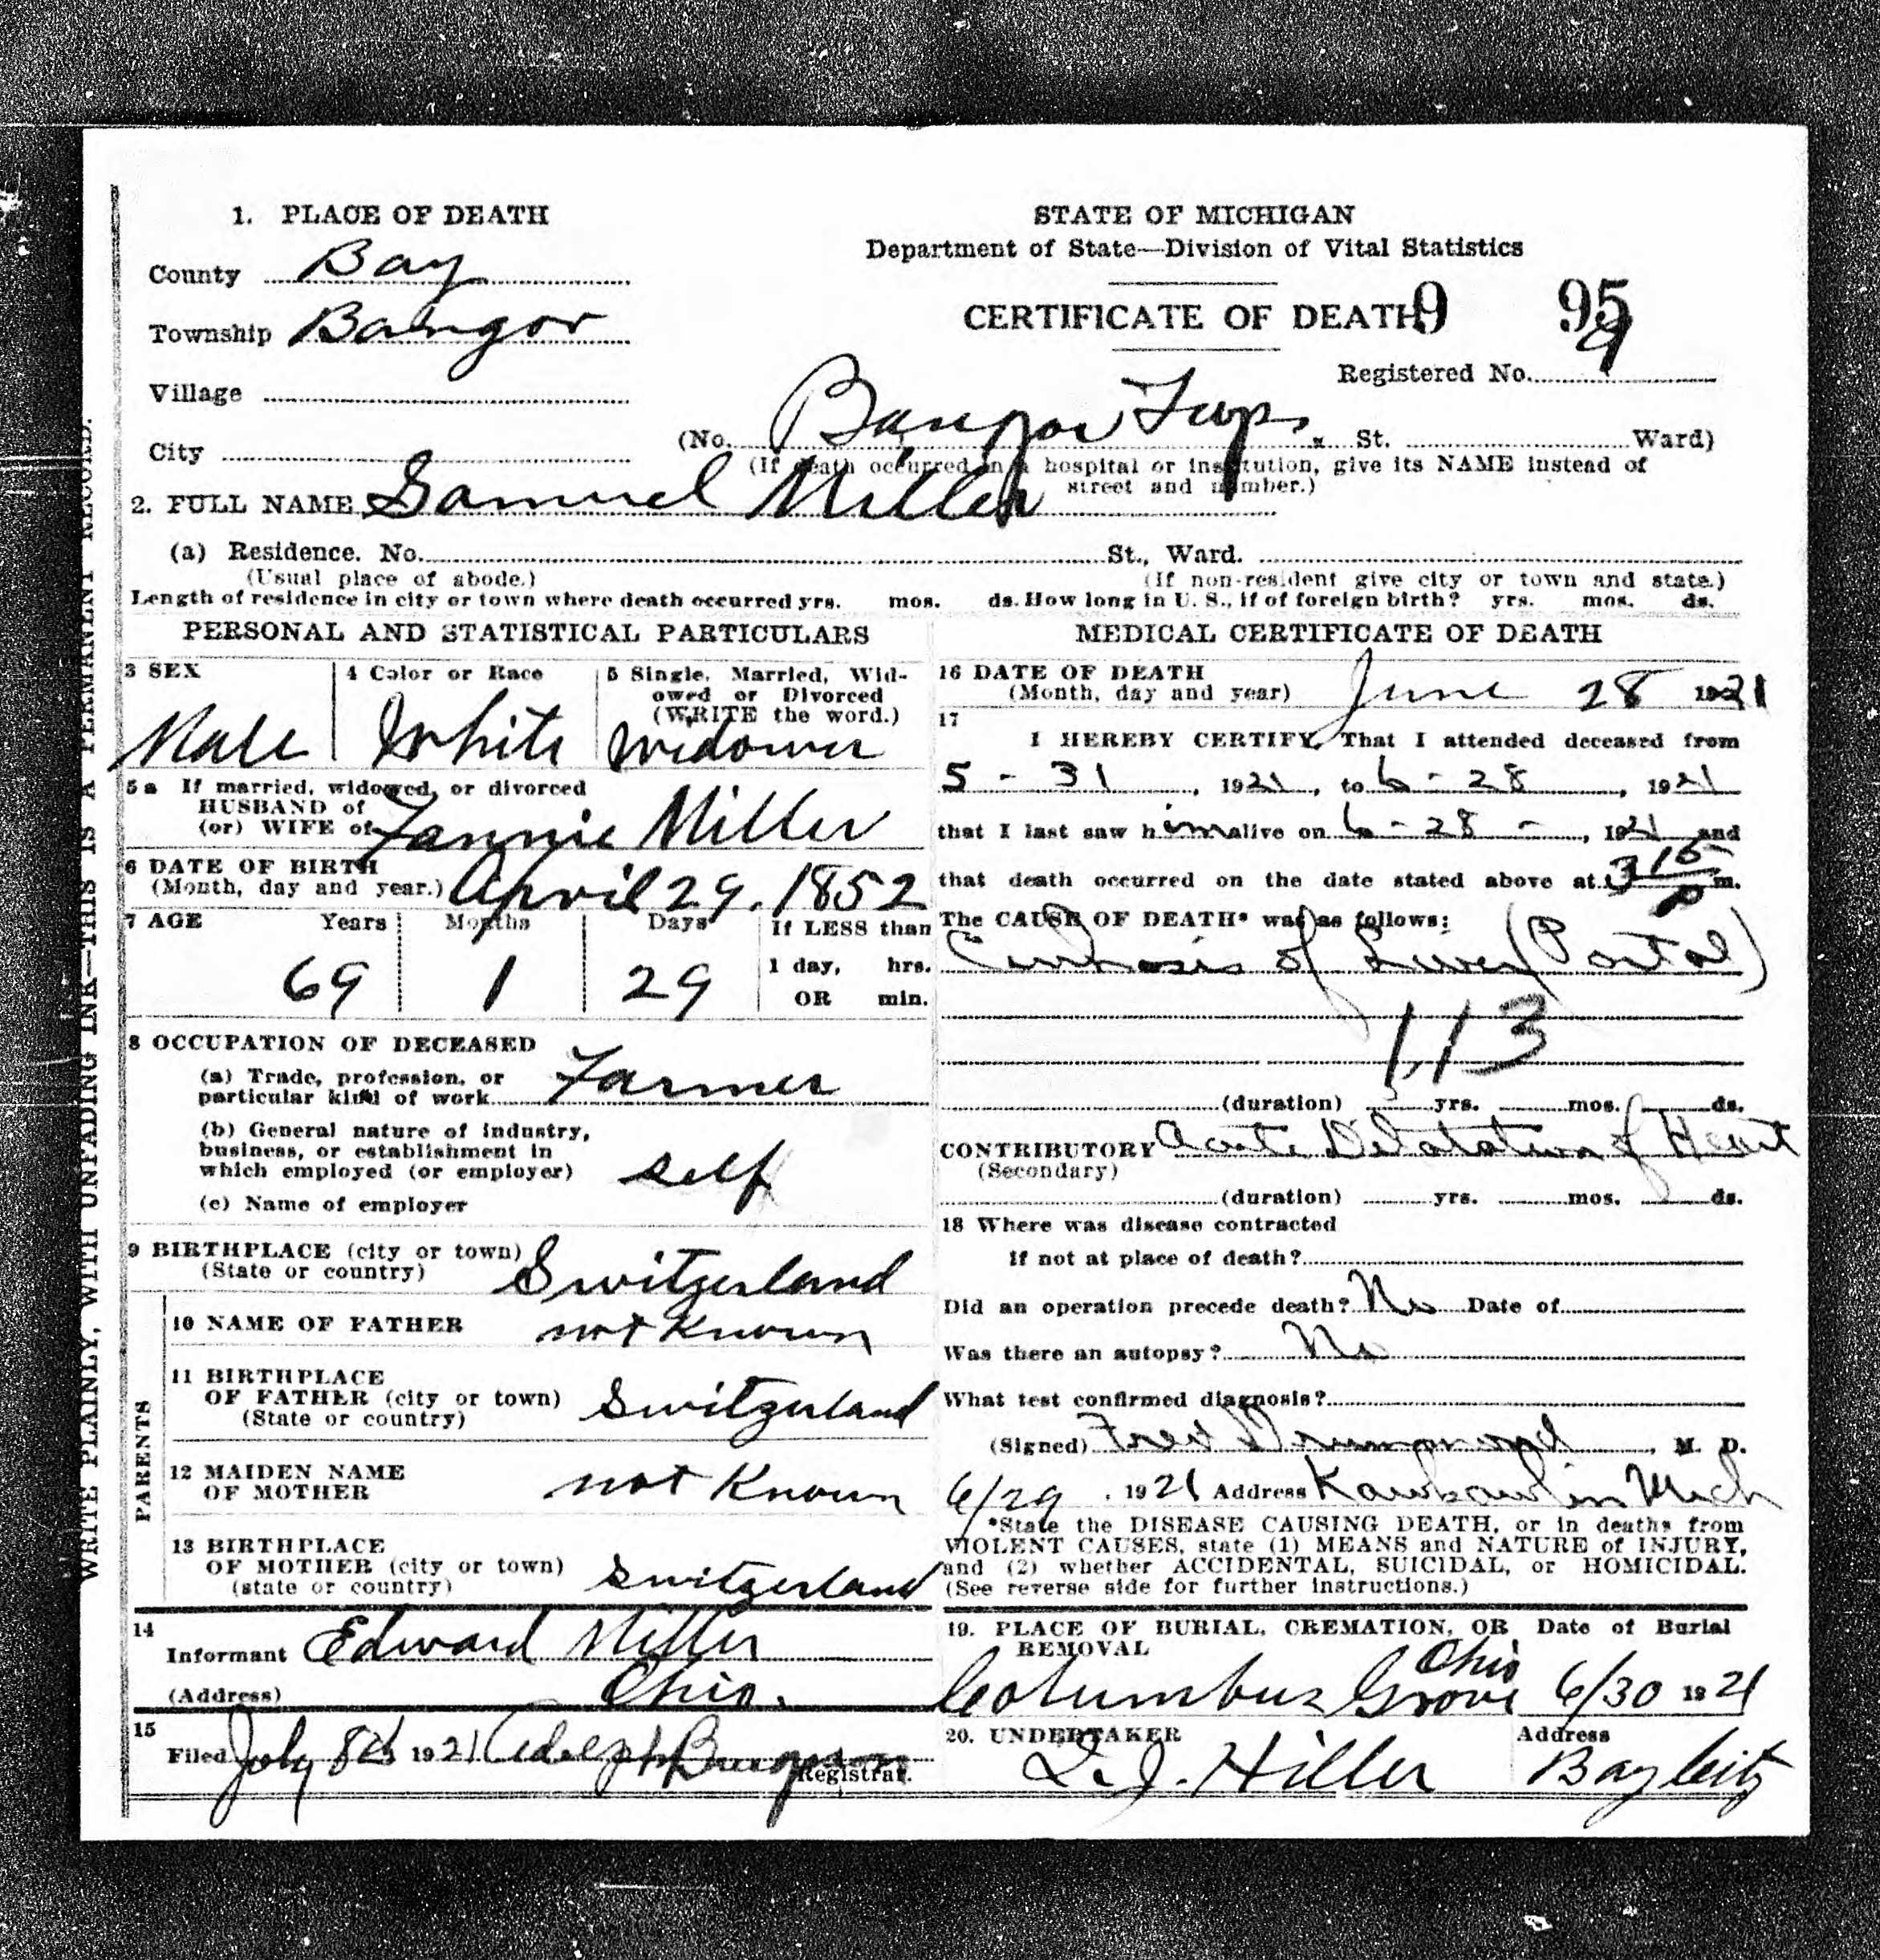 1. PLACE OF DEATH
County Bay
Township Bangor
Village
City
STATE OF MICHIGAN
Department of State—Division of Vital Statistics
CERTIFICATE OF DEATH
9 95
Registered No. 9
(No. Bangor Twps. St. Ward)
(If death occurred in a hospital or institution, give its NAME instead of
street and number.)
2. FULL NAME Samuel Miller
(a) Residence. No. St., Ward.
(Usual place of abode.) (If non-resident give city or town and state.)
Length of residence in city or town where death occurred yrs. mos. ds. How long in U. S., if of foreign birth? yrs. mos. ds.
PERSONAL AND STATISTICAL PARTICULARS
3 SEX
Male
4 Color or Race
White
5 Single, Married, Wid-
owed or Divorced
(WRITE the word.)
Widower
5a If married, widowed, or divorced
HUSBAND of
(or) WIFE of Fannie Miller
6 DATE OF BIRTH
(Month, day and year.) April 29. 1852
7 AGE Years Months Days If LESS than
69 1 29 1 day, hrs.
OR min.
8 OCCUPATION OF DECEASED
(a) Trade, profession, or
particular kind of work Farmer
(b) General nature of industry,
business, or establishment in
which employed (or employer) self
(c) Name of employer
9 BIRTHPLACE (city or town)
(State or country) Switzerland
PARENTS
10 NAME OF FATHER not Known
11 BIRTHPLACE
OF FATHER (city or town) Switzerland
(State or country)
12 MAIDEN NAME
OF MOTHER not Known
13 BIRTHPLACE
OF MOTHER (city or town)
(state or country) Switzerland
14
Informant Edward Miller
(Address) Ohio.
15
Filed July 8th 1921 Adolph
Registrar.
MEDICAL CERTIFICATE OF DEATH
16 DATE OF DEATH
(Month, day and year) June 28 1921
17
I HEREBY CERTIFY, That I attended deceased from
5 - 31, 1921, to 6 - 28, 1921
that I last saw h im alive on 6 - 28 -, 1921 and
that death occurred on the date stated above at 3 15 P m.
The CAUSE OF DEATH* was as follows:
Cirrhosis of Liver (Portal)
113
(duration) yrs. mos. ds.
CONTRIBUTORY Acute Dilatation of Heart
(Secondary)
(duration) yrs. mos. ds.
18 Where was disease contracted
If not at place of death?
Did an operation precede death? No Date of
Was there an autopsy? No
What test confirmed diagnosis?
(Signed) Fred Drummond, M. D.
6/29, 1921 Address Kawkawlin Mich
*State the DISEASE CAUSING DEATH, or in deaths from
VIOLENT CAUSES, state (1) MEANS and NATURE of INJURY,
and (2) whether ACCIDENTAL, SUICIDAL, or HOMICIDAL.
(See reverse side for further instructions.)
19. PLACE OF BURIAL, CREMATION, OR Date of Burial
REMOVAL
Columbus Grove Ohio 6/30 1921
20. UNDERTAKER Address
Hiller Bay City
WRITE PLAINLY, WITH UNFADING INK—THIS IS A PERMANENT RECORD.